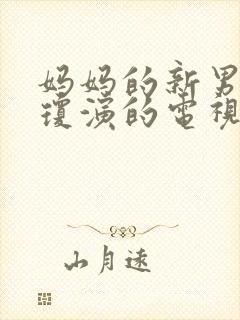 妈妈的新男
瓊演的電視
山月遠